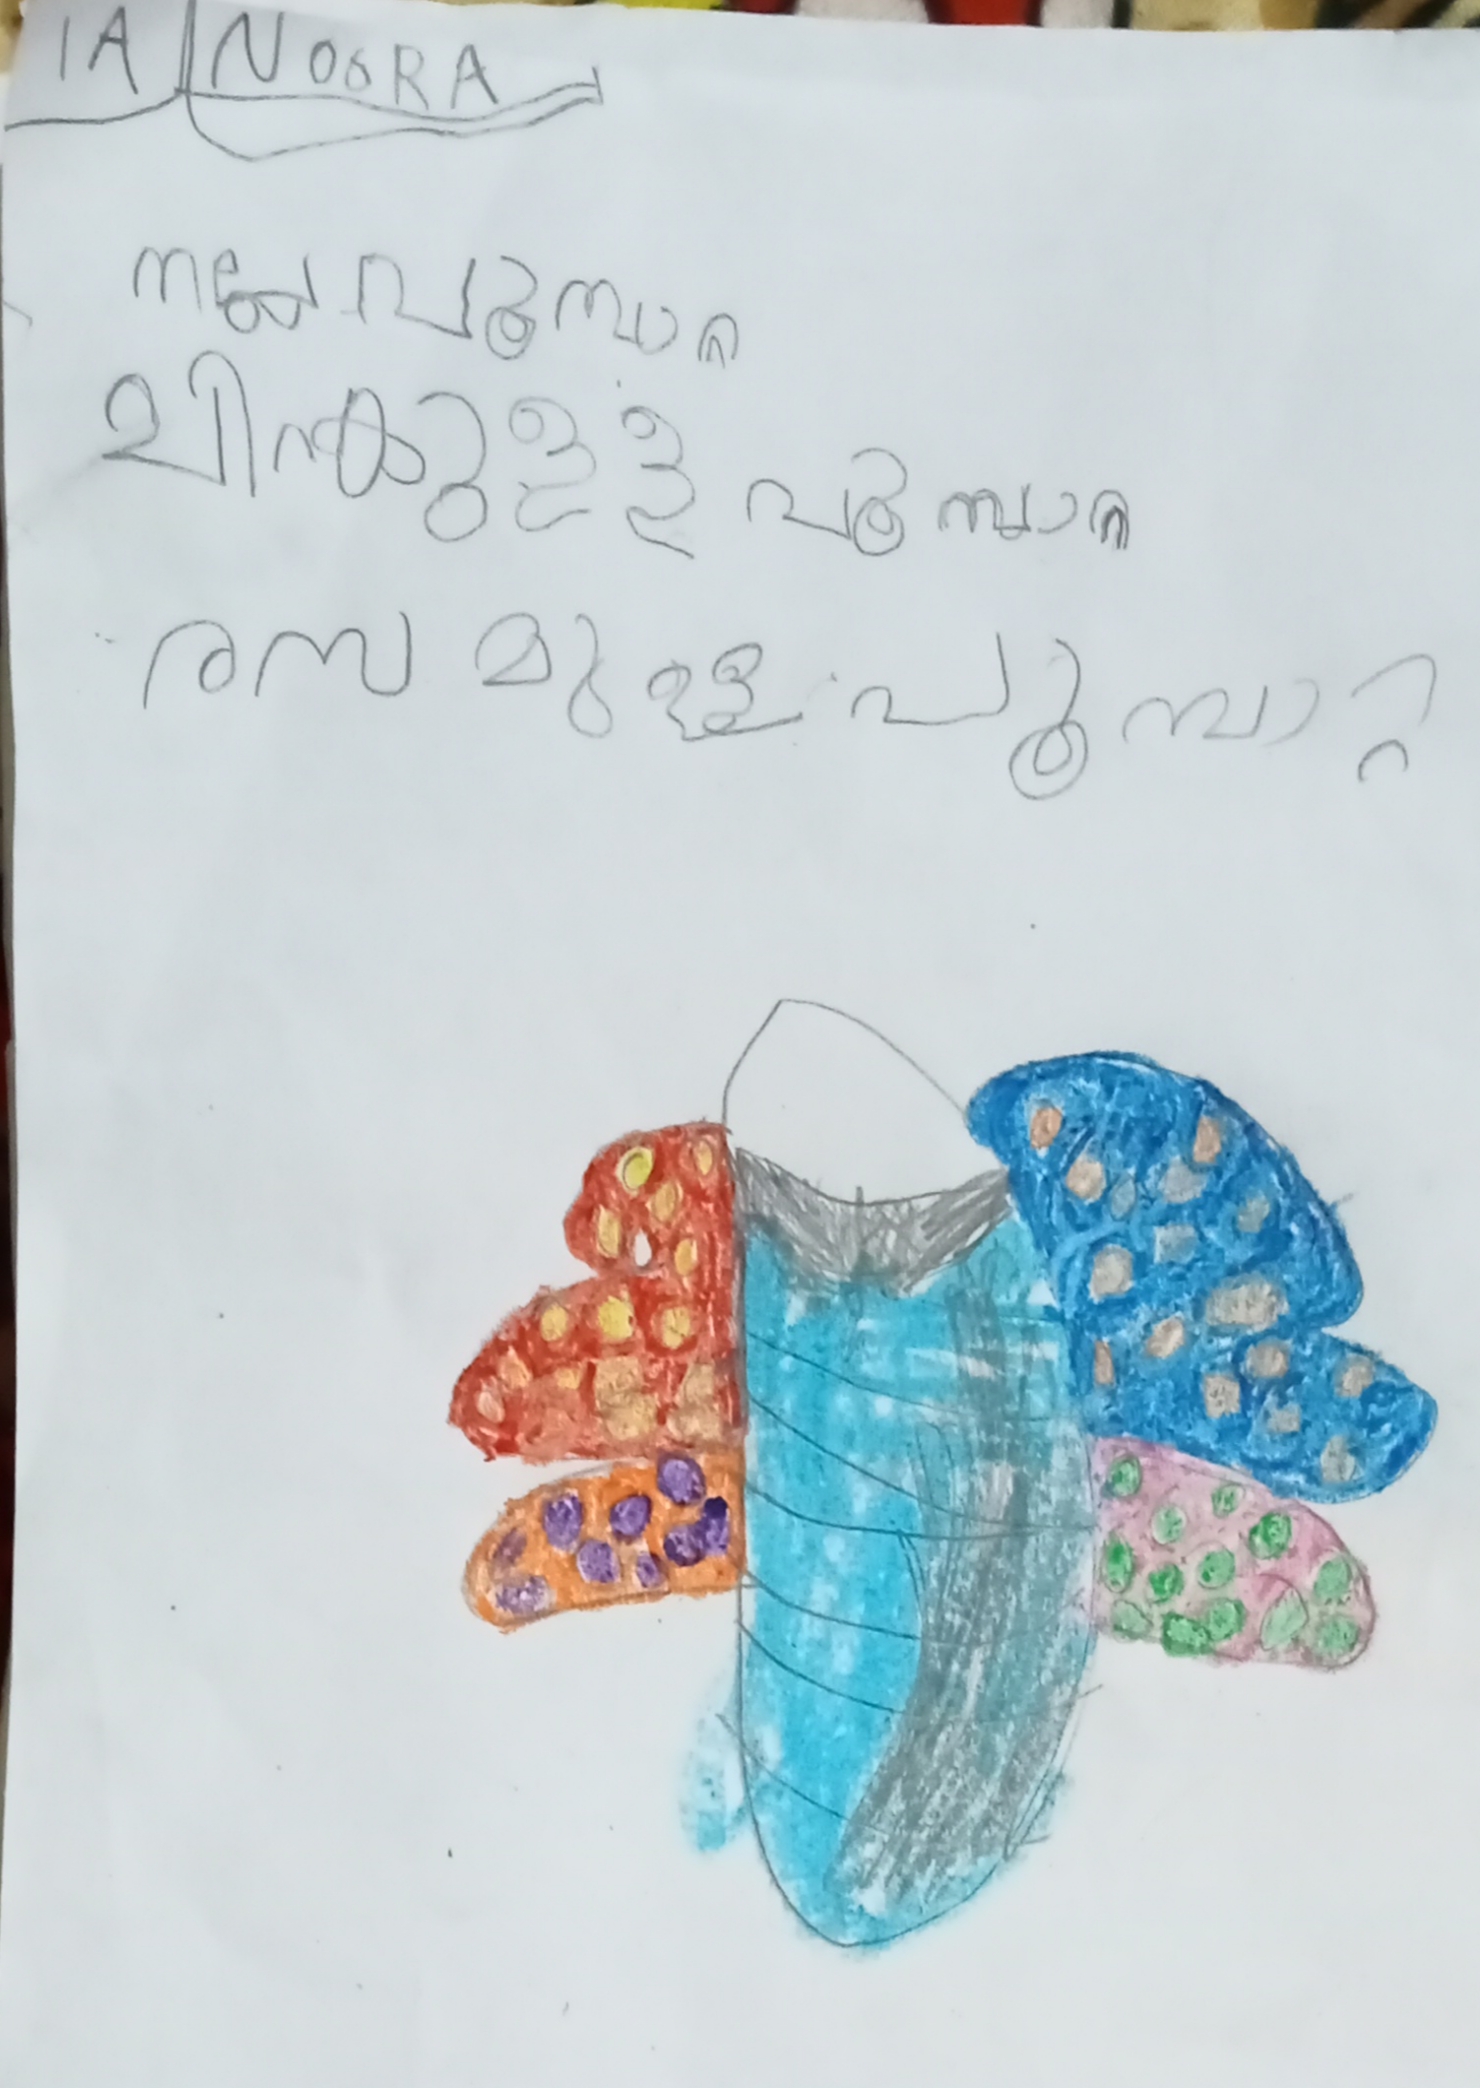 1A NOORA
നല്ല പൂമ്പാറ്റ
ചിറകുള്ള പൂമ്പാറ്റ
രസമുള്ള പൂമ്പാറ്റ